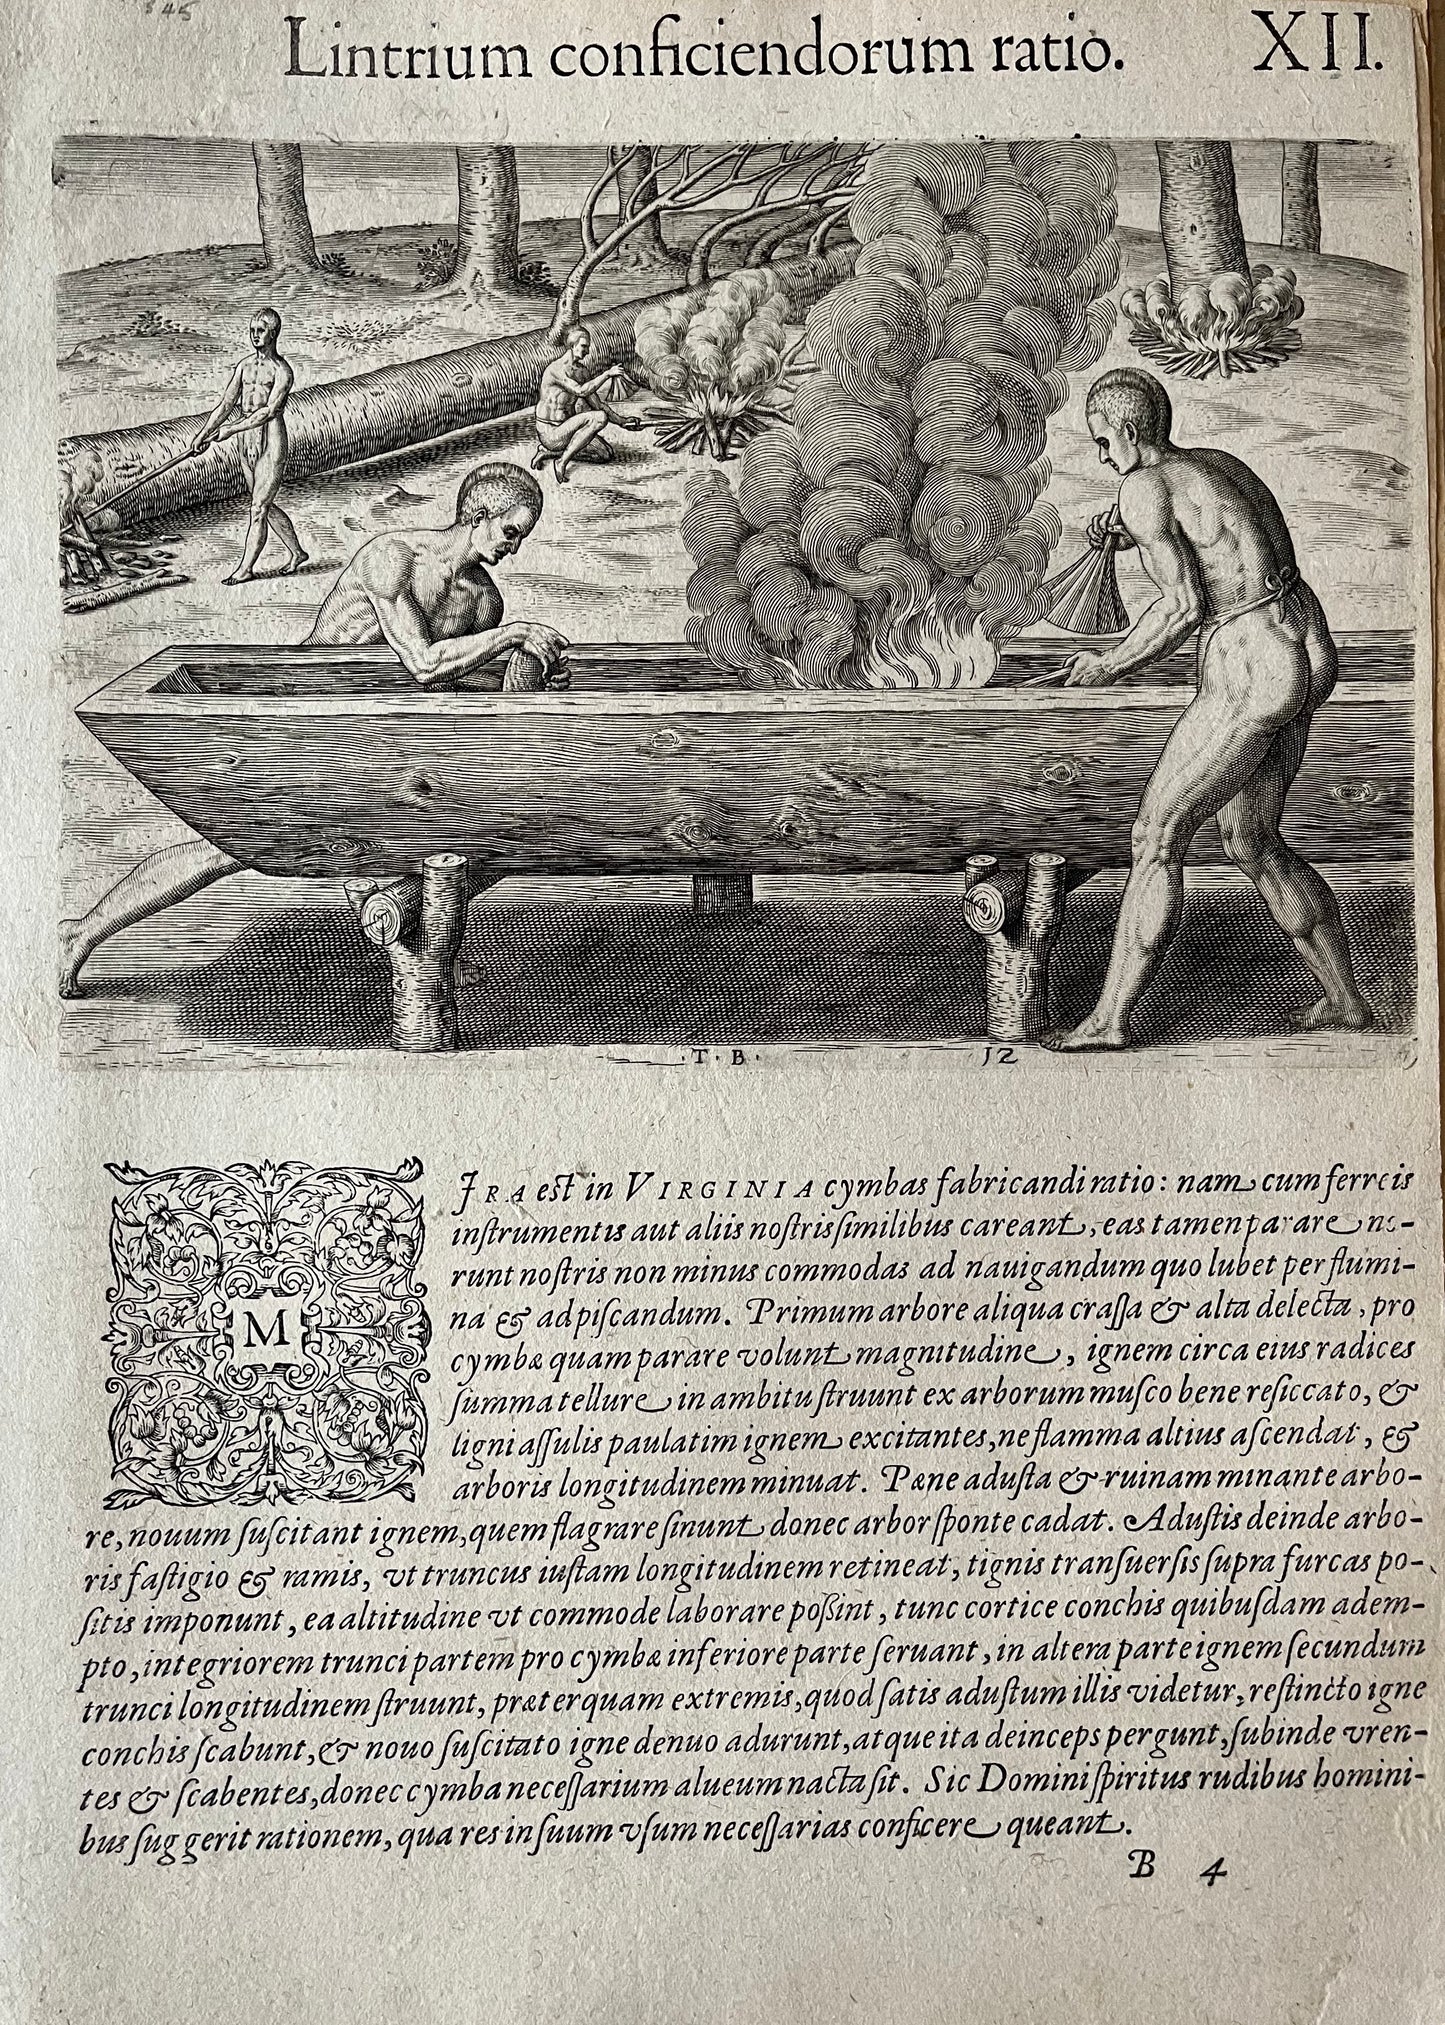 Lintrium conficiendorum ratio. XII.
·T·B· 12
M
IRA eſt in VIRGINIA cymbas fabricandi ratio: nam cum ferreis
inſtrumentis aut aliis noſtris ſimilibus careant, eas tamen parare no-
runt noſtris non minus commodas ad nauigandum quo lubet per flumi-
na & ad piſcandum. Primum arbore aliqua craſſa & alta delecta, pro
cymbæ quam parare volunt magnitudine, ignem circa eius radices
ſumma tellure in ambitu ſtruunt ex arborum muſco bene reſiccato, &
ligni aſſulis paulatim ignem excitantes, ne flamma altius aſcendat, &
arboris longitudinem minuat. Pæne aduſta & ruinam minante arbo-
re, nouum ſuſcitant ignem, quem flagrare ſinunt donec arbor ſponte cadat. Aduſtis deinde arbo-
ris faſtigio & ramis, vt truncus iuſtam longitudinem retineat, tignis tranſuerſis ſupra furcas po-
ſitis imponunt, ea altitudine vt commode laborare poßint, tunc cortice conchis quibuſdam adem-
pto, integriorem trunci partem pro cymbæ inferiore parte ſeruant, in altera parte ignem ſecundum
trunci longitudinem ſtruunt, præterquam extremis, quod ſatis aduſtum illis videtur, reſtincto igne
conchis ſcabunt, & nouo ſuſcitato igne denuo adurunt, atque ita deinceps pergunt, ſubinde vren-
tes & ſcabentes, donec cymba neceſſarium alueum nacta ſit. Sic Domini ſpiritus rudibus homini-
bus ſuggerit rationem, qua res in ſuum vſum neceſſarias conficere queant.
B 4